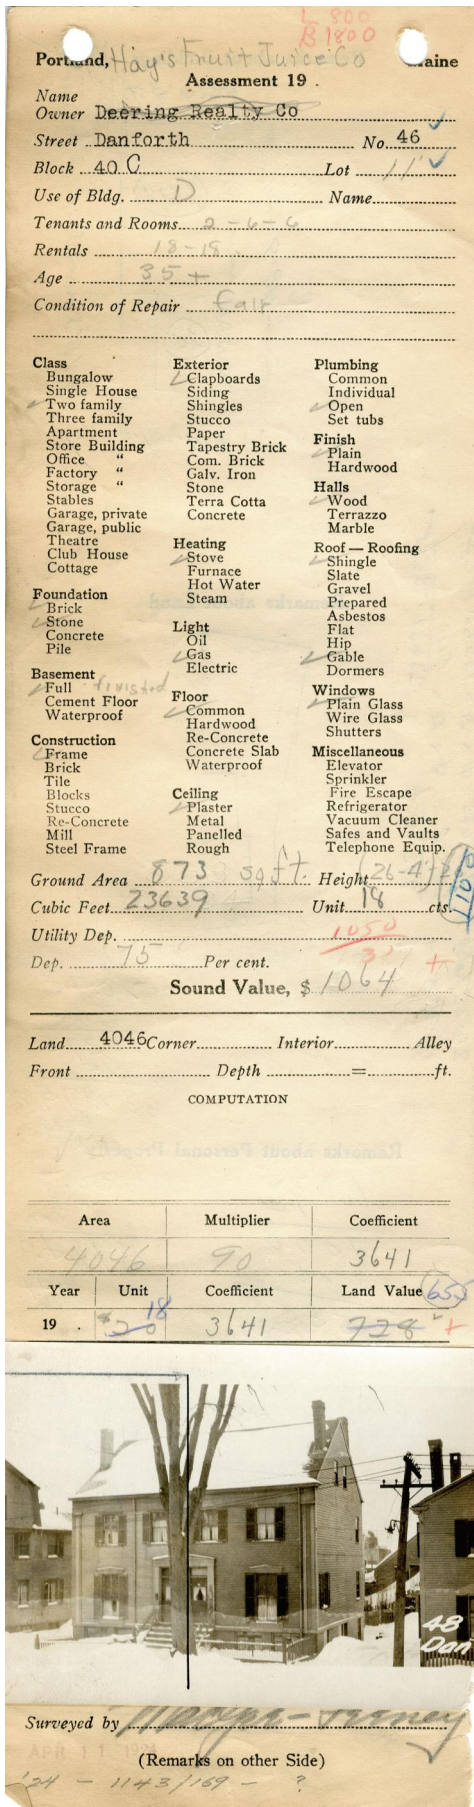 L 800
B 1800
Portland, Hay's Fruit Juice Co Maine
Assessment 19 .
Name
Owner Deering Realty Co
Street Danforth No. 46
Block 40 C Lot 11
Use of Bldg. D Name
Tenants and Rooms 2-6-6
Rentals 18-18
Age 35+
Condition of Repair fair
Class
Bungalow
Single House
Two family
Three family
Apartment
Store Building
Office "
Factory "
Storage "
Stables
Garage, private
Garage, public
Theatre
Club House
Cottage
Foundation
Brick
Stone
Concrete
Pile
Basement
Full finished
Cement Floor
Waterproof
Construction
Frame
Brick
Tile
Blocks
Stucco
Re-Concrete
Mill
Steel Frame
Exterior
Clapboards
Siding
Shingles
Stucco
Paper
Tapestry Brick
Com. Brick
Galv. Iron
Stone
Terra Cotta
Concrete
Heating
Stove
Furnace
Hot Water
Steam
Light
Oil
Gas
Electric
Floor
Common
Hardwood
Re-Concrete
Concrete Slab
Waterproof
Ceiling
Plaster
Metal
Panelled
Rough
Plumbing
Common
Individual
Open
Set tubs
Finish
Plain
Hardwood
Halls
Wood
Terrazzo
Marble
Roof — Roofing
Shingle
Slate
Gravel
Prepared
Asbestos
Flat
Hip
Gable
Dormers
Windows
Plain Glass
Wire Glass
Shutters
Miscellaneous
Elevator
Sprinkler
Fire Escape
Refrigerator
Vacuum Cleaner
Safes and Vaults
Telephone Equip.
Ground Area 873 sq ft. Height
Cubic Feet 23639 Unit 18 cts.
Utility Dep. 1050
Dep. 75 Per cent. +
Sound Value, $ 1064
Land 4046 Corner Interior Alley
Front Depth = ft.
COMPUTATION
Area Multiplier Coefficient
4046 90 3641
Year Unit Coefficient Land Value 655
18
19 . $20 3641 728 +
48
Dan
Surveyed by
APR 11 1924
(Remarks on other Side)
'24 - 1143/169 - ?